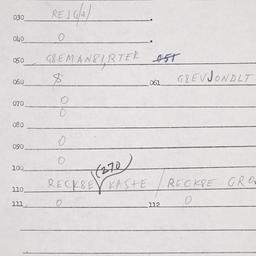 030 REIGH
040 0
050 GSEMANSIRTER OST
060 8 061 GSEVJONDLT
070 0
0
080
090 0
0
100 (270)
110 RECKSE KASTE / RECKSE GRO
111 0 112 0